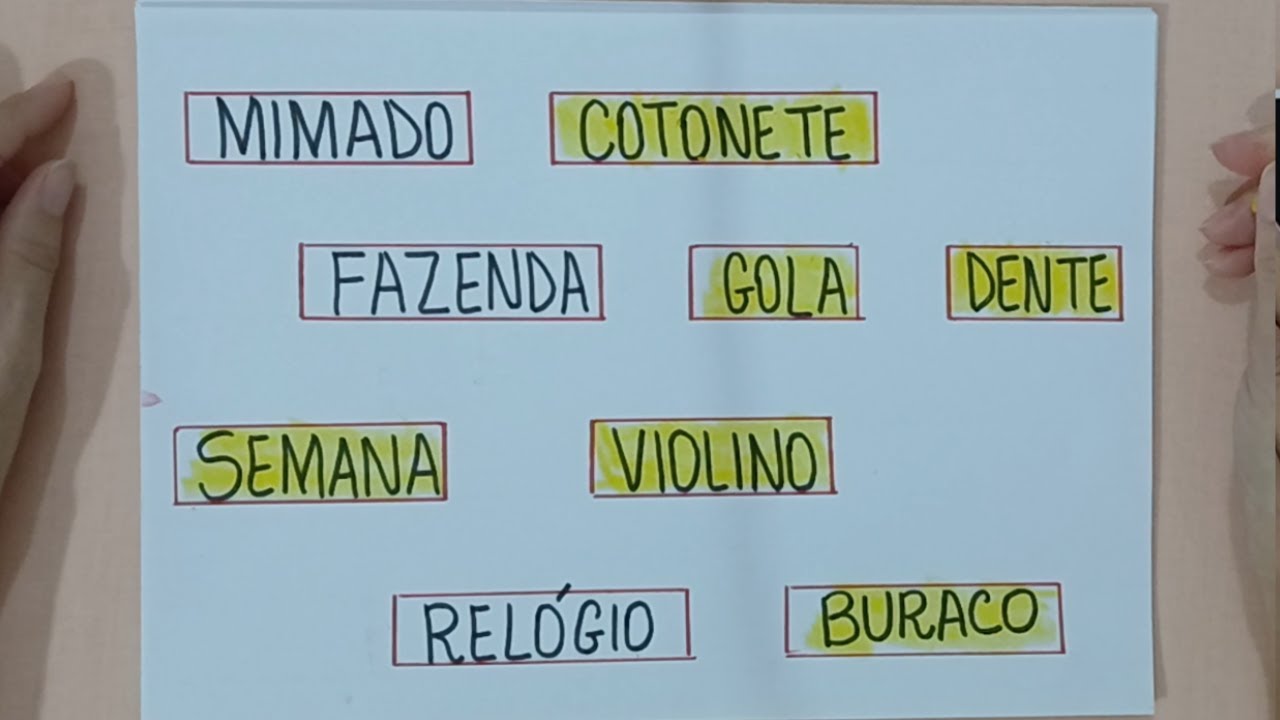 MIMADO COTONETE
FAZENDA GOLA DENTE
SEMANA VIOLINO
RELÓGIO BURACO